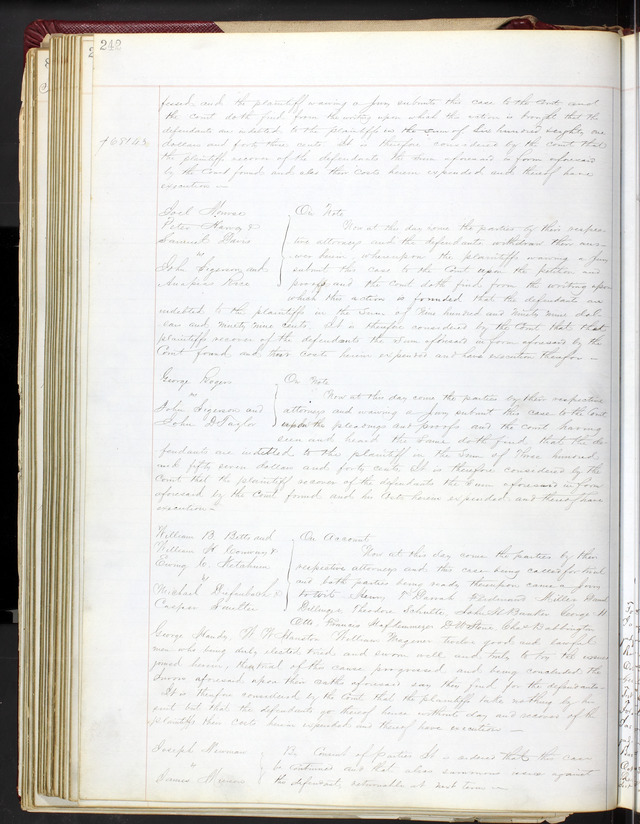 242
fessed and the plaintiff waiving a Jury submits this case to the Court and
the Court doth find from the writing upon which the action is brought that the
defendants are indebted to the plaintiff in the sum of Six hundred eighty one
$681.43 dollars and forty three cents. It is therefore considered by the Court that
the plaintiff recover of the defendants the sum aforesaid in form aforesaid
by the Court found and also the costs herein expended and thereof have
execution —
Joel
Peter &
Samuel Davis
vs
John Sigerson and
On Note
Now at this day come the parties by their respec
tive attorneys and the defendants withdraw their ans-
wer herein, whereupon the plaintiff waiving a Jury
submit this case to the Court upon the petition and
proofs and the Court doth find from the writing upon
which this action is founded that the defendants are
indebted to the plaintiffs in the Sum of Nine hundred and Ninety nine dol-
lars and Ninety nine cents. It is therefore considered by the Court that that
plaintiffs recover of the defendants the Sum aforesaid in form aforesaid by the
Court found, and their costs herein expended and have execution therefor —
George Rogers
vs
John Sigerson and
John D Taylor
On Note
Now at this day come the parties by their respective
attorneys and waiving a Jury submit this case to the Court
upon the pleadings and proofs and the Court having
seen and heard the same doth find that the de
fendants are indebted to the plaintiff in the Sum of Three hundred
and fifty seven dollars and forty cents. It is therefore considered by the
Court that the plaintiff recover of the defendants the Sum aforesaid in form
aforesaid by the Court found and his costs herein expended, and thereof have
execution —
William B. Betts and
William H Conway &
Ewing W.
vs
Michael Diefenbach &
Caspar
On Account
Now at this day come the parties by their
respective attorneys and this case being called for trial
and both parties being ready thereupon came a Jury
to wit: Henry Ferdinand
Theodore Schulte, John H George H
Otto, Francis
George Handy, William Wagener twelve good and lawful
men who being duly elected tried and sworn well and truly to try the issue
joined herein, the trial of the cause progressed and being concluded the
Jurors aforesaid upon their oaths aforesaid say they find for the defendants
It is therefore considered by the Court that the plaintiffs take nothing by his
suit but that the defendants go thereof hence without day and recover of the
plaintiffs their costs herein expended and thereof have execution —
Joseph Newman
vs
James
By Consent of Parties It is ordered that this case
be continued and that alias summons issue against
the defendant, returnable at next term —